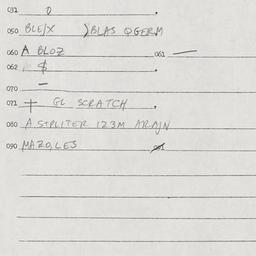 031 0
050 BLE/X )BLAS QGERM
060 A BLOZ 061 —
062 $
070 —
071 + GL SCRATCH
080 A STPLITER 123M ARAJN
090 MARO,LES 091